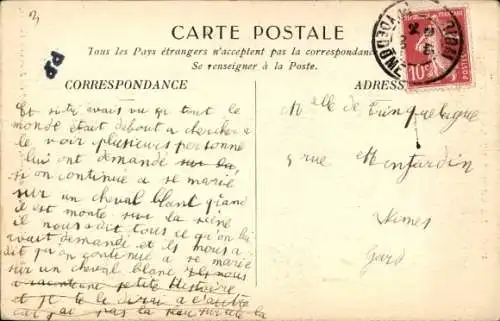 3
CARTE POSTALE
Tous les Pays étrangers n'acceptent pas la correspondance
Se renseigner à la Poste.
P.P
CORRESPONDANCE
Et si tu avais vu que tout le
monde était debout a chercher a
le voir plusieurs personne
lui ont demandé sur la
si on continue a se marié
sur un cheval blanc quand
il est monté sur la scène
il nous dit tous ce qu'on lui
avait demandé et ils nous a
dit qu'on continue a se marié
sur un cheval blanc nous
a racontaine petite Histoire
et je te le dirai a l'autre
car j'ai pas la
ADRESS
Melle de Trinquelague
9 rue Menjardin
Nimes
Gard
10
POSTES